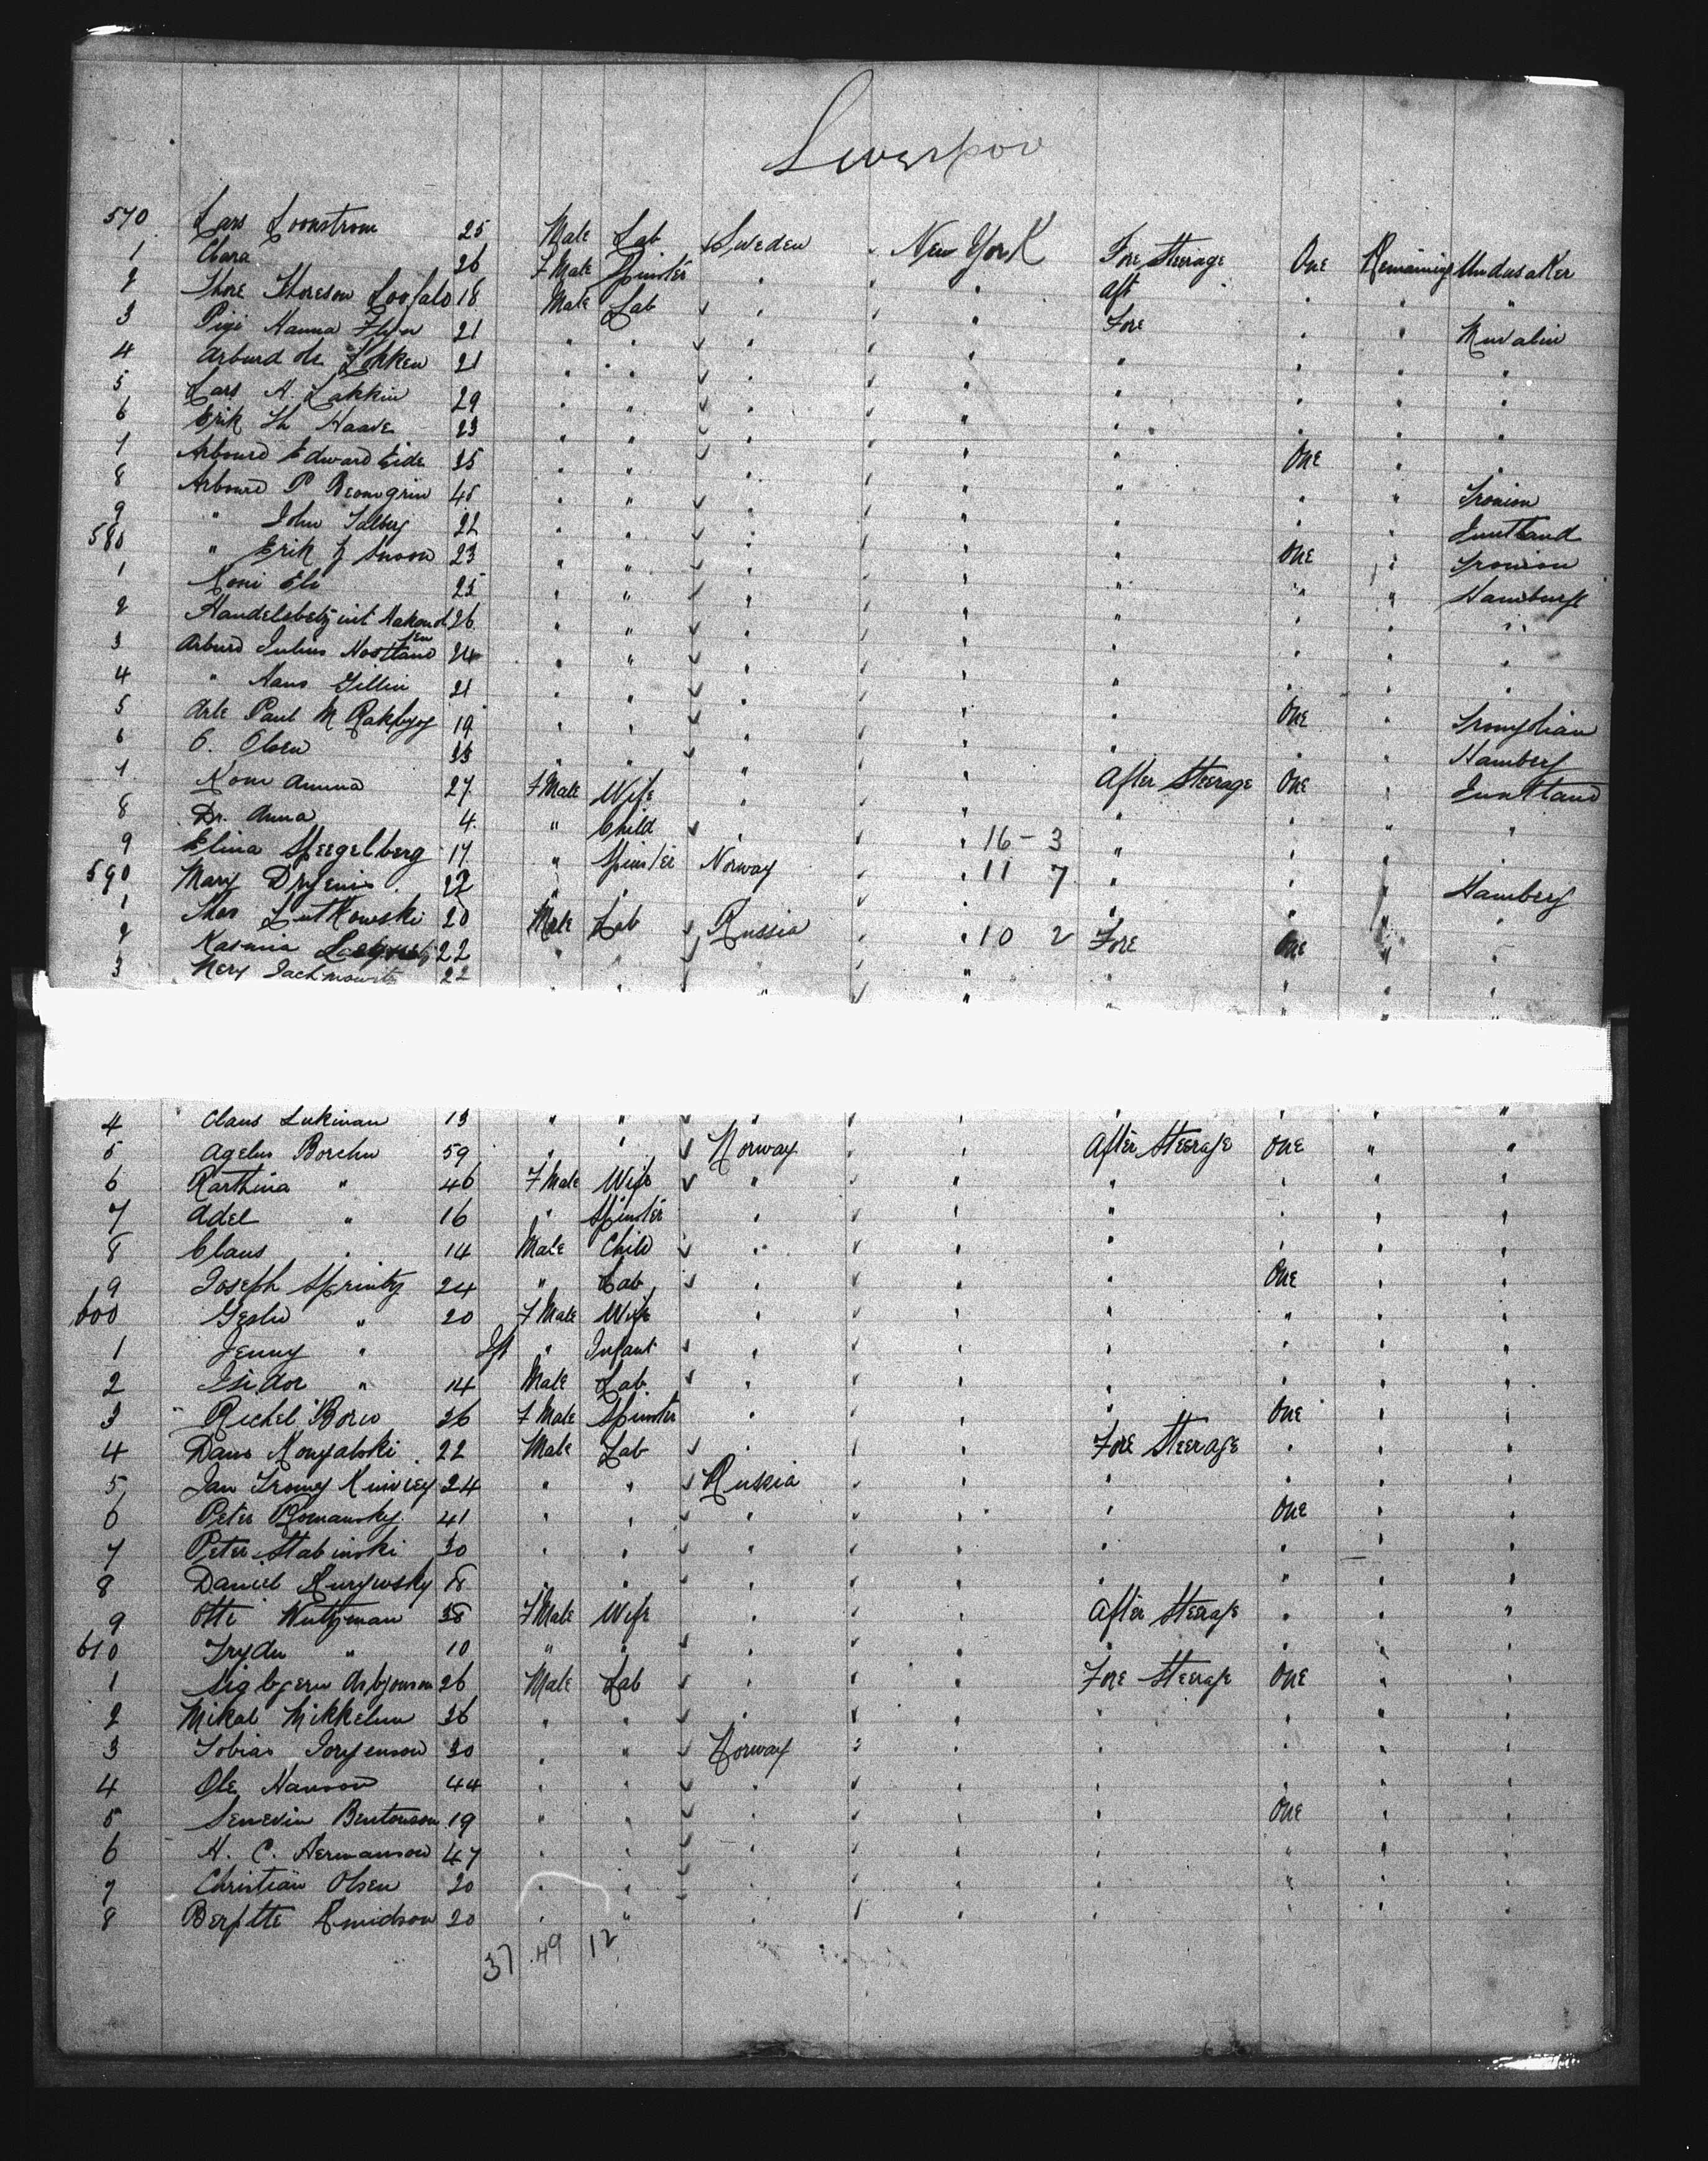 Liverpoo
570 Lars Loonstrom 25 Male Lab Sweden New York Fore Steerage One Remaining Undusaker
1 Clara 26 FMale Spinster " " Aft " " "
2 Thore Thoreson Loofald 18 Male Lab " " Fore " " Muvalin
3 Pigi Hanna 21 " " " " " " " "
4 Arburd Ole Lokken 21 " " " " " " " "
5 Lars A. Lakkin 29 " " " " " " " "
6 Erik Th Haave 23 " " " " " " " "
7 Arbourd Edward Eide 25 " " " " " One " "
8 Arbourd P 45 " " " " " " " Tronion
9 " John Idlberg 22 " " " " " " "
580 " Erik 23 " " " " " One " Tronion
1 Koni Eli 25 " " " " " " " Hamburg
2 26 " " " " " " " "
3 Arburd Julius 24 " " " " " " " "
4 " Hans Gillin 21 " " " " " " " "
5 Arle Paul M 19 " " " " " One "
6 C. Olsen 33 " " " " " " " Hamberg
7 Kone Amuna 27 FMale Wife " " After Steerage One "
8 Dr. Anna 4 " Child " " " " " "
9 Elina Stergelberg 17 " Spinster Norway " 16 - 3 " " " "
590 Mary 22 " " " 11 7 " " " Hamberg
1 Thos Lutkowski 20 Male Lab Russia " 10 2 " " " "
2 Kasuna 22 " " " " Fore One " "
3 Mery Jachmowitz 22 " " " " " " " "
4 Claus Lukinan 13 " " " " " " " "
5 Agelus Borchu 59 " " Norway " After Steerage One " "
6 Karthina " 46 FMale Wife " " " " " "
7 Adel " 16 " Spinster " " " " " "
8 Claus " 14 Male Child " " " " " "
9 Joseph Sprintz 24 " Lab " " " One " "
600 Geslu " 20 FMale Wife " " " " " "
1 Jenny " Ift " Infant " " " " " "
2 Isidor " 14 Male Lab " " " " " "
3 Richel Boru 26 FMale Spinster " " " One " "
4 Daus Konyalski 22 Male Lab " " Fore Steerage " " "
5 Jan Tromy 24 " " Russia " " " " "
6 Peter Romansky 41 " " " " " One " "
7 Peter Stabinski 30 " " " " " " " "
8 Daniel Kurywsky 18 " " " " " " " "
9 Otti Wultzman 38 FMale Wife " " After Steerage " " "
610 Frydu " 10 " " " " " " " "
1 Sigbjern Asbjonson 26 Male Lab " " Fore Steerage One " "
2 Mikal Mikkelsen 36 " " " " " " " "
3 Tobias Jorgenson 30 " " Norway " " " " "
4 Ole Hanson 44 " " " " " " " "
5 Senevin Bentonson 19 " " " " " One " "
6 H. C. Hermanson 47 " " " " " " " "
7 Christian Olsen 20 " " " " " " " "
8 Berfitte 20 " " " " " " " "
37 49 12